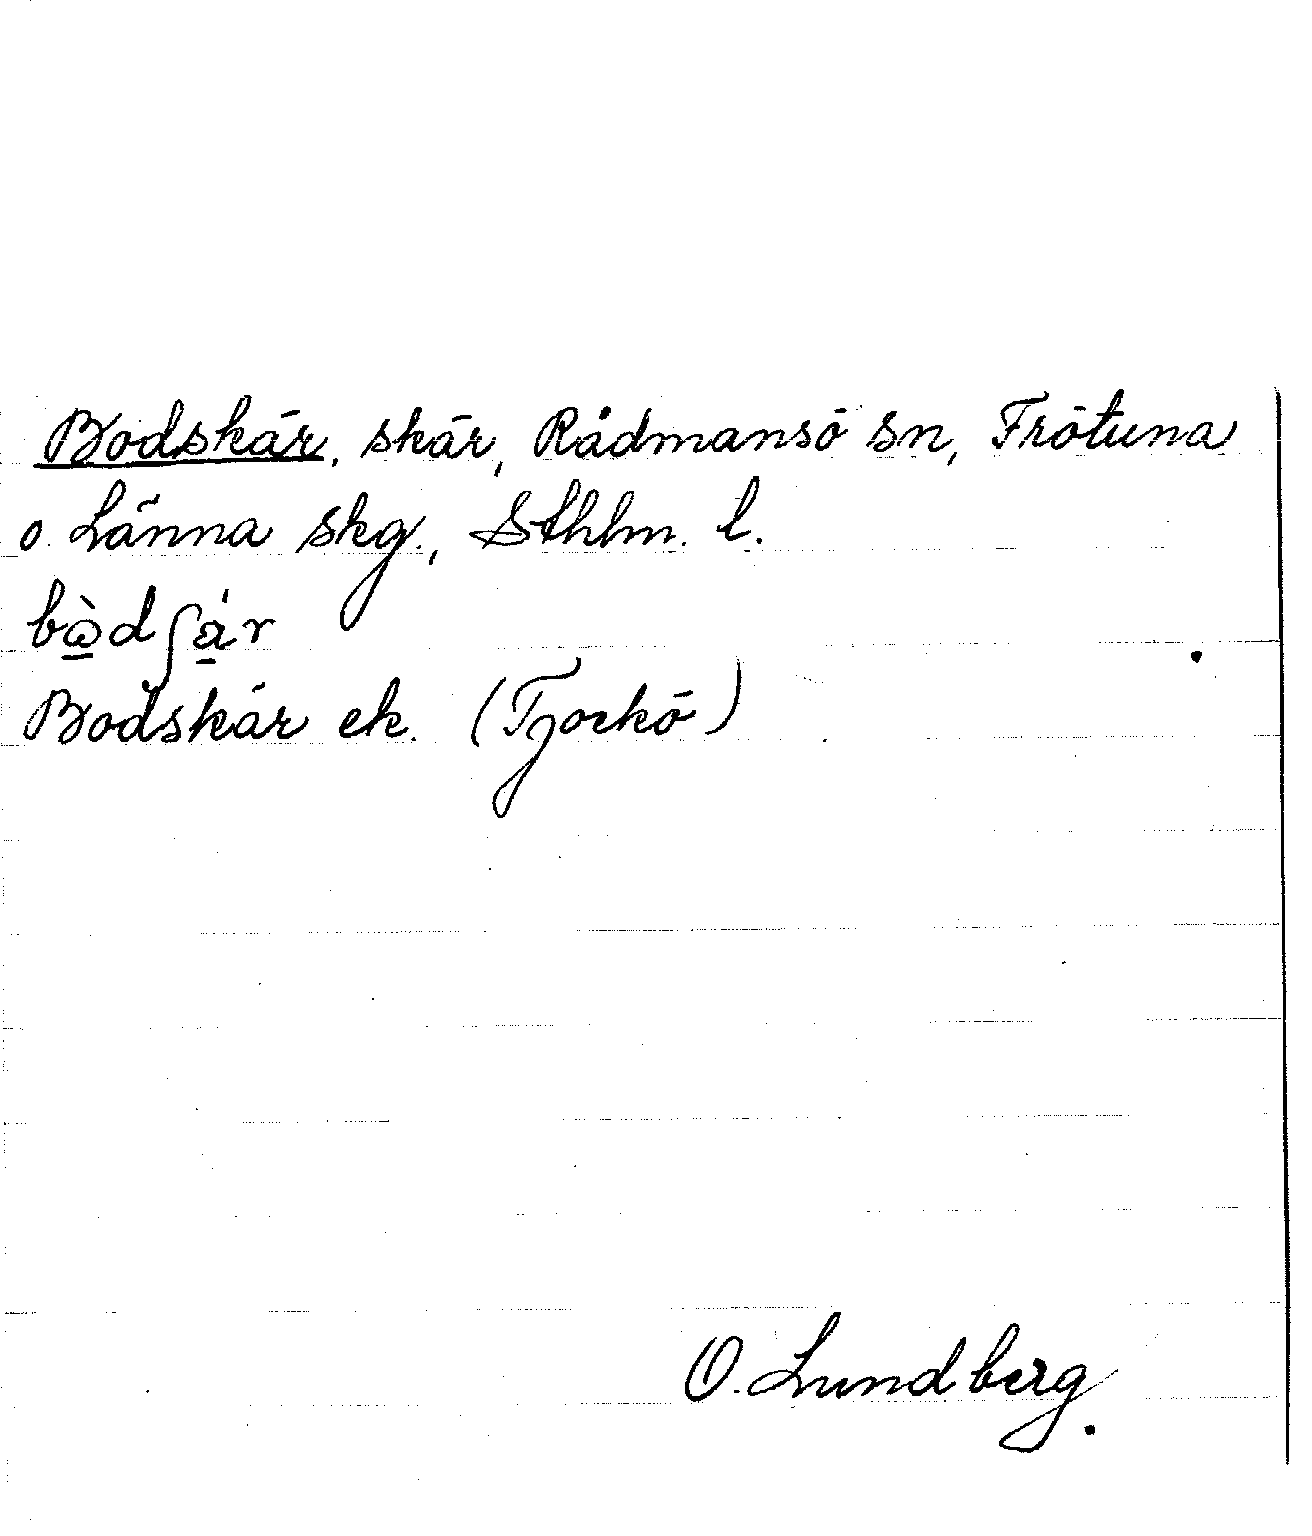 Bodskär, skär, Rådmansö sn, Frötuna
o. Länna skg., Sthlm. l.
bὼ̲dʃa̲̍r
Bodskär ek. (Tjockö)
O. Lundberg.